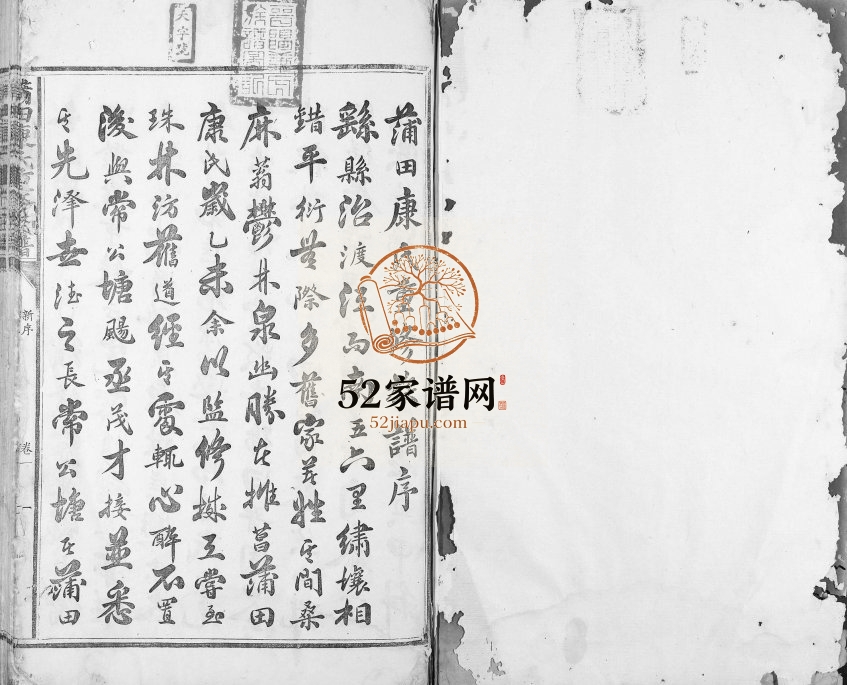 蒲田康氏重修譜序
繇縣治渡江而東五六里繡壤相
錯平衍無際多舊家芳姓其間桑
麻蓊鬱井泉幽勝在推菖蒲田
康氏歲乙未余以監修城工嘗至
珠林汸舊道經其處輒心醉不置
浚與常公塘颺丞茂才接並悉
其先澤世德之長常公塘其蒲田
新序
卷一
天字號
52家谱网
52jiapu.com